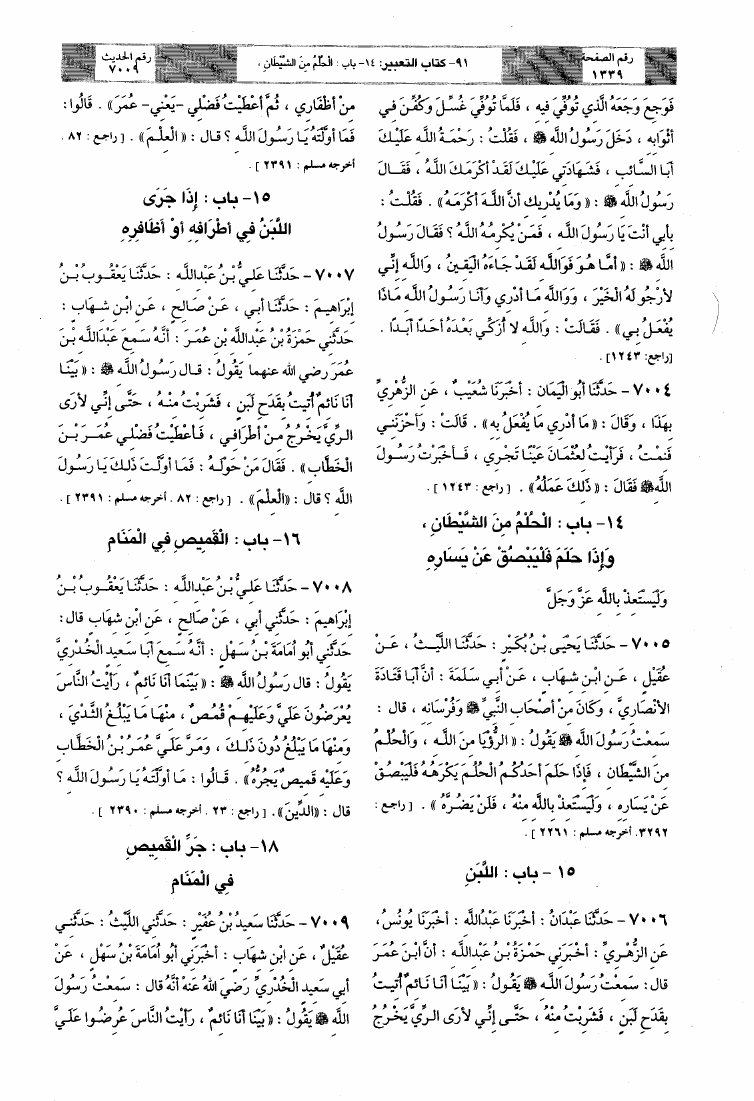 رقم الصفحة
١٣٣٩
٩١- كتاب التعبير: ١٤- باب: الْحُلْمُ مِنَ الشَّيْطَانِ ،
رقم الحديث
٧٠٠٩
فَوَجِعَ وَجَعَهُ الَّذِي تُوُفِّيَ فِيهِ ، فَلَمَّا تُوُفِّيَ غُسِّلَ وَكُفِّنَ فِي
أَثْوَابِهِ ، دَخَلَ رَسُولُ اللَّهِ ﷺ ، فَقُلْتُ : رَحْمَةُ اللَّهِ عَلَيْكَ
أَبَا السَّائِبِ ، فَشَهَادَتِي عَلَيْكَ لَقَدْ أَكْرَمَكَ اللَّهُ ، فَقَالَ
رَسُولُ اللَّهِ ﷺ : «وَمَا يُدْرِيكِ أَنَّ اللَّهَ أَكْرَمَهُ» . فَقُلْتُ :
بِأَبِي أَنْتَ يَا رَسُولَ اللَّهِ ، فَمَنْ يُكْرِمُهُ اللَّهُ ؟ فَقَالَ رَسُولُ
اللَّهِ ﷺ : «أَمَّا هُوَ فَوَاللَّهِ لَقَدْ جَاءَهُ الْيَقِينُ ، وَاللَّهِ إِنِّي
لأَرْجُو لَهُ الْخَيْرَ ، وَوَاللَّهِ مَا أَدْرِي وَأَنَا رَسُولُ اللَّهِ مَاذَا
يُفْعَلُ بِي» . فَقَالَتْ : وَاللَّهِ لا أُزَكِّي بَعْدَهُ أَحَدًا أَبَدًا .
[راجع: ١٢٤٣].
٧٠٠٤- حَدَّثَنَا أَبُو الْيَمَانِ : أَخْبَرَنَا شُعَيْبٌ ، عَنِ الزُّهْرِيِّ
بِهَذَا ، وَقَالَ : «مَا أَدْرِي مَا يُفْعَلُ بِهِ» . قَالَتْ : وَأَحْزَنَنِي
فَنِمْتُ ، فَرَأَيْتُ لِعُثْمَانَ عَيْنًا تَجْرِي ، فَأَخْبَرْتُ رَسُولَ
اللَّهِ ﷺ فَقَالَ : «ذَلِكَ عَمَلُهُ» . [ راجع : ١٢٤٣ ] .
١٤- باب : الْحُلْمُ مِنَ الشَّيْطَانِ ،
وَإِذَا حَلَمَ فَلْيَبْصُقْ عَنْ يَسَارِهِ
وَلْيَسْتَعِذْ بِاللَّهِ عَزَّ وَجَلَّ
٧٠٠٥- حَدَّثَنَا يَحْيَى بْنُ بُكَيْرٍ : حَدَّثَنَا اللَّيْثُ ، عَنْ
عُقَيْلٍ ، عَنِ ابْنِ شِهَابٍ ، عَنْ أَبِي سَلَمَةَ : أَنَّ أَبَا قَتَادَةَ
الأَنْصَارِيَّ ، وَكَانَ مِنْ أَصْحَابِ النَّبِيِّ ﷺ وَفُرْسَانِهِ ، قَالَ :
سَمِعْتُ رَسُولَ اللَّهِ ﷺ يَقُولُ : «الرُّؤْيَا مِنَ اللَّهِ ، وَالْحُلْمُ
مِنَ الشَّيْطَانِ ، فَإِذَا حَلَمَ أَحَدُكُمُ الْحُلُمَ يَكْرَهُهُ فَلْيَبْصُقْ
عَنْ يَسَارِهِ ، وَلْيَسْتَعِذْ بِاللَّهِ مِنْهُ ، فَلَنْ يَضُرَّهُ» . [ راجع :
٣٢٩٢. أخرجه مسلم : ٢٢٦١ ] .
١٥ - باب : اللَّبَنِ
٧٠٠٦- حَدَّثَنَا عَبْدَانُ : أَخْبَرَنَا عَبْدُاللَّهِ : أَخْبَرَنَا يُونُسُ،
عَنِ الزُّهْرِيِّ : أَخْبَرَنِي حَمْزَةُ بْنُ عَبْدِاللَّهِ : أَنَّ ابْنَ عُمَرَ
قَالَ: سَمِعْتُ رَسُولَ اللَّهِ ﷺ يَقُولُ : «بَيْنَا أَنَا نَائِمٌ أُتِيتُ
بِقَدَحِ لَبَنٍ ، فَشَرِبْتُ مِنْهُ ، حَتَّى إِنِّي لأَرَى الرِّيَّ يَخْرُجُ
مِنْ أَظْفَارِي ، ثُمَّ أَعْطَيْتُ فَضْلِي -يَعْنِي- عُمَرَ» . قَالُوا :
فَمَا أَوَّلْتَهُ يَا رَسُولَ اللَّهِ ؟ قَالَ : «الْعِلْمَ» . [ راجع : ٨٢ .
أخرجه مسلم : ٢٣٩١ ] .
١٥- باب : إِذَا جَرَى
اللَّبَنُ فِي أَطْرَافِهِ أَوْ أَظَافِرِهِ
٧٠٠٧- حَدَّثَنَا عَلِيُّ بْنُ عَبْدِاللَّهِ : حَدَّثَنَا يَعْقُوبُ بْنُ
إِبْرَاهِيمَ : حَدَّثَنَا أَبِي ، عَنْ صَالِحٍ ، عَنِ ابْنِ شِهَابٍ :
حَدَّثَنِي حَمْزَةُ بْنُ عَبْدِاللَّهِ بْنِ عُمَرَ : أَنَّهُ سَمِعَ عَبْدَاللَّهِ بْنَ
عُمَرَ رَضِيَ اللَّهُ عَنْهُمَا يَقُولُ : قَالَ رَسُولُ اللَّهِ ﷺ : «بَيْنَا
أَنَا نَائِمٌ أُتِيتُ بِقَدَحِ لَبَنٍ ، فَشَرِبْتُ مِنْهُ ، حَتَّى إِنِّي لأَرَى
الرِّيَّ يَخْرُجُ مِنْ أَطْرَافِي ، فَأَعْطَيْتُ فَضْلِي عُمَرَ بْنَ
الْخَطَّابِ» . فَقَالَ مَنْ حَوْلَهُ : فَمَا أَوَّلْتَ ذَلِكَ يَا رَسُولَ
اللَّهِ ؟ قَالَ : «الْعِلْمَ» . [ راجع : ٨٢ . أخرجه مسلم : ٢٣٩١ ] .
١٦- باب : الْقَمِيصِ فِي الْمَنَامِ
٧٠٠٨- حَدَّثَنَا عَلِيُّ بْنُ عَبْدِاللَّهِ : حَدَّثَنَا يَعْقُوبُ بْنُ
إِبْرَاهِيمَ : حَدَّثَنِي أَبِي ، عَنْ صَالِحٍ ، عَنِ ابْنِ شِهَابٍ قَالَ:
حَدَّثَنِي أَبُو أُمَامَةَ بْنُ سَهْلٍ : أَنَّهُ سَمِعَ أَبَا سَعِيدٍ الْخُدْرِيَّ
يَقُولُ : قَالَ رَسُولُ اللَّهِ ﷺ : «بَيْنَمَا أَنَا نَائِمٌ ، رَأَيْتُ النَّاسَ
يُعْرَضُونَ عَلَيَّ وَعَلَيْهِمْ قُمُصٌ ، مِنْهَا مَا يَبْلُغُ الثَّدْيَ ،
وَمِنْهَا مَا يَبْلُغُ دُونَ ذَلِكَ ، وَمَرَّ عَلَيَّ عُمَرُ بْنُ الْخَطَّابِ
وَعَلَيْهِ قَمِيصٌ يَجُرُّهُ» . قَالُوا : مَا أَوَّلْتَهُ يَا رَسُولَ اللَّهِ ؟
قَالَ : «الدِّينَ» . [ راجع : ٢٣ . أخرجه مسلم : ٢٣٩٠ ] .
١٨- باب : جَرِّ الْقَمِيصِ
فِي الْمَنَامِ
٧٠٠٩- حَدَّثَنَا سَعِيدُ بْنُ عُفَيْرٍ : حَدَّثَنِي اللَّيْثُ : حَدَّثَنِي
عُقَيْلٌ ، عَنِ ابْنِ شِهَابٍ : أَخْبَرَنِي أَبُو أُمَامَةَ بْنُ سَهْلٍ ، عَنْ
أَبِي سَعِيدٍ الْخُدْرِيِّ رَضِيَ اللَّهُ عَنْهُ أَنَّهُ قَالَ : سَمِعْتُ رَسُولَ
اللَّهِ ﷺ يَقُولُ : «بَيْنَا أَنَا نَائِمٌ ، رَأَيْتُ النَّاسَ عُرِضُوا عَلَيَّ